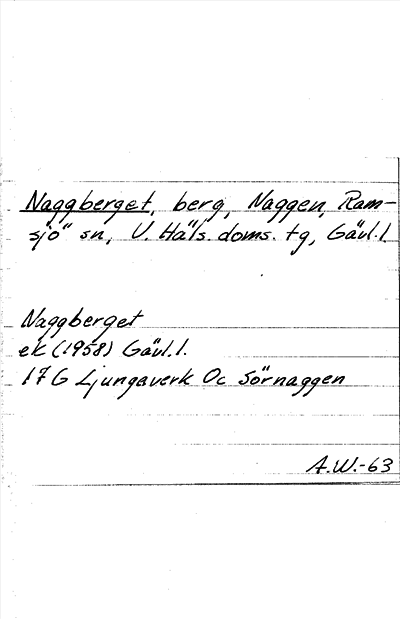 Naggberget, berg, Naggen, Ram-
sjö sn, V. Häls. doms. tg, Gävl. l.
Naggberget
ek (1958) Gävl. l.
17 G Ljungaverk 0c Sörnaggen
A.W.-63